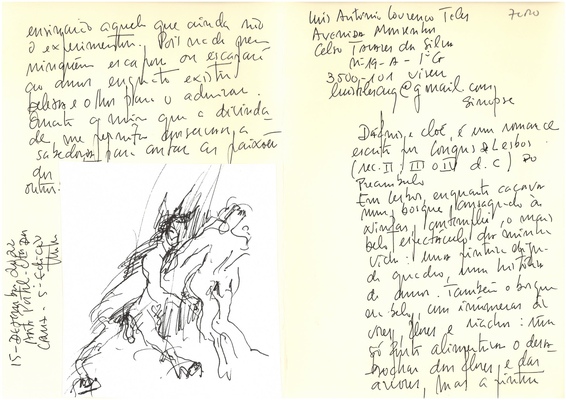 ensinário aquele que ainda não
o experimentou. Pois nada nem
ninguém escapou ou escapará
ao amor enquanto existir
beleza e olhos para o admirar.
Quanto a mim que a divinda-
de, me permita conservar a
sabedoria para contar as paixões
dos
outros.
15-
Luis António Lourenço Teles
Avenida Monsenhor
Celso Tavares da Silva
nº 19-A-1º G
3,500-101 viseu
@gmail.com
Zero
Sinopse
Dafnis, e cloé, é um romance
escrito por Longus de Lesbos
(sec. II, III o IV d.C) Do
Preambulo
Em Lesbos, enquanto caçava
num, bosque consagrado às
ninfas contemplei, o mais
belo espectáculo da minha
vida: uma pintura
de quadro, uma história
de amor. Também o bosque
era belo, com inúmeras ár-
vores, flores e riachos: uma
só fonte alimentava o desa-
brochar das flores, e das
árvores, mas a pintu